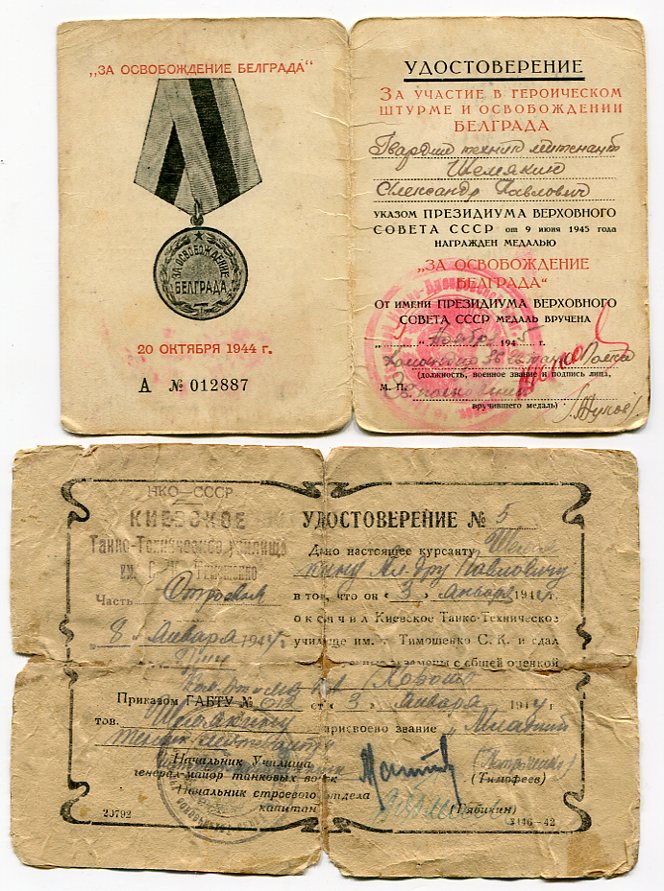 „ЗА ОСВОБОЖДЕНИЕ БЕЛГРАДА“
ЗА ОСВОБОЖДЕНИЕ
БЕЛГРАДА
20 ОКТЯБРЯ 1944 г.
А № 012887
УДОСТОВЕРЕНИЕ
ЗА УЧАСТИЕ В ГЕРОИЧЕСКОМ
ШТУРМЕ И ОСВОБОЖДЕНИИ
БЕЛГРАДА
Гвардии техник лейтенант
Шемякин
Александр Павлович
УКАЗОМ ПРЕЗИДИУМА ВЕРХОВНОГО
СОВЕТА СССР от 9 июня 1945 года
НАГРАЖДЕН МЕДАЛЬЮ
„ЗА ОСВОБОЖДЕНИЕ
БЕЛГРАДА“
ОТ ИМЕНИ ПРЕЗИДИУМА ВЕРХОВНОГО
СОВЕТА СССР МЕДАЛЬ ВРУЧЕНА
Ноября 1945
(должность, военное звание и подпись лица,
М. П.
вручившего медаль)
НКО—СССР
КИЕВСКОЕ
Танко-Техническое училище
им. ТИМОШЕНКО
Часть
8 января 194
УДОСТОВЕРЕНИЕ № 5
Дано настоящее курсанту Шемя
кину Ал-дру Павловичу
в том, что он „3“ января 194
окончил Киевское Танко-Техническое
училище им. Тимошенко С. К. и сдал
экзамены с общей оценкой
Хорошо
Приказом ГАБТУ № от „3“ января 1944
тов. Шемякину присвоено звание „Младший
техник лейтенант
Начальник Училища
генерал-майор танковых войск (Тимофеев)
Начальник строевого отдела
капитан (Рябикин)
20792